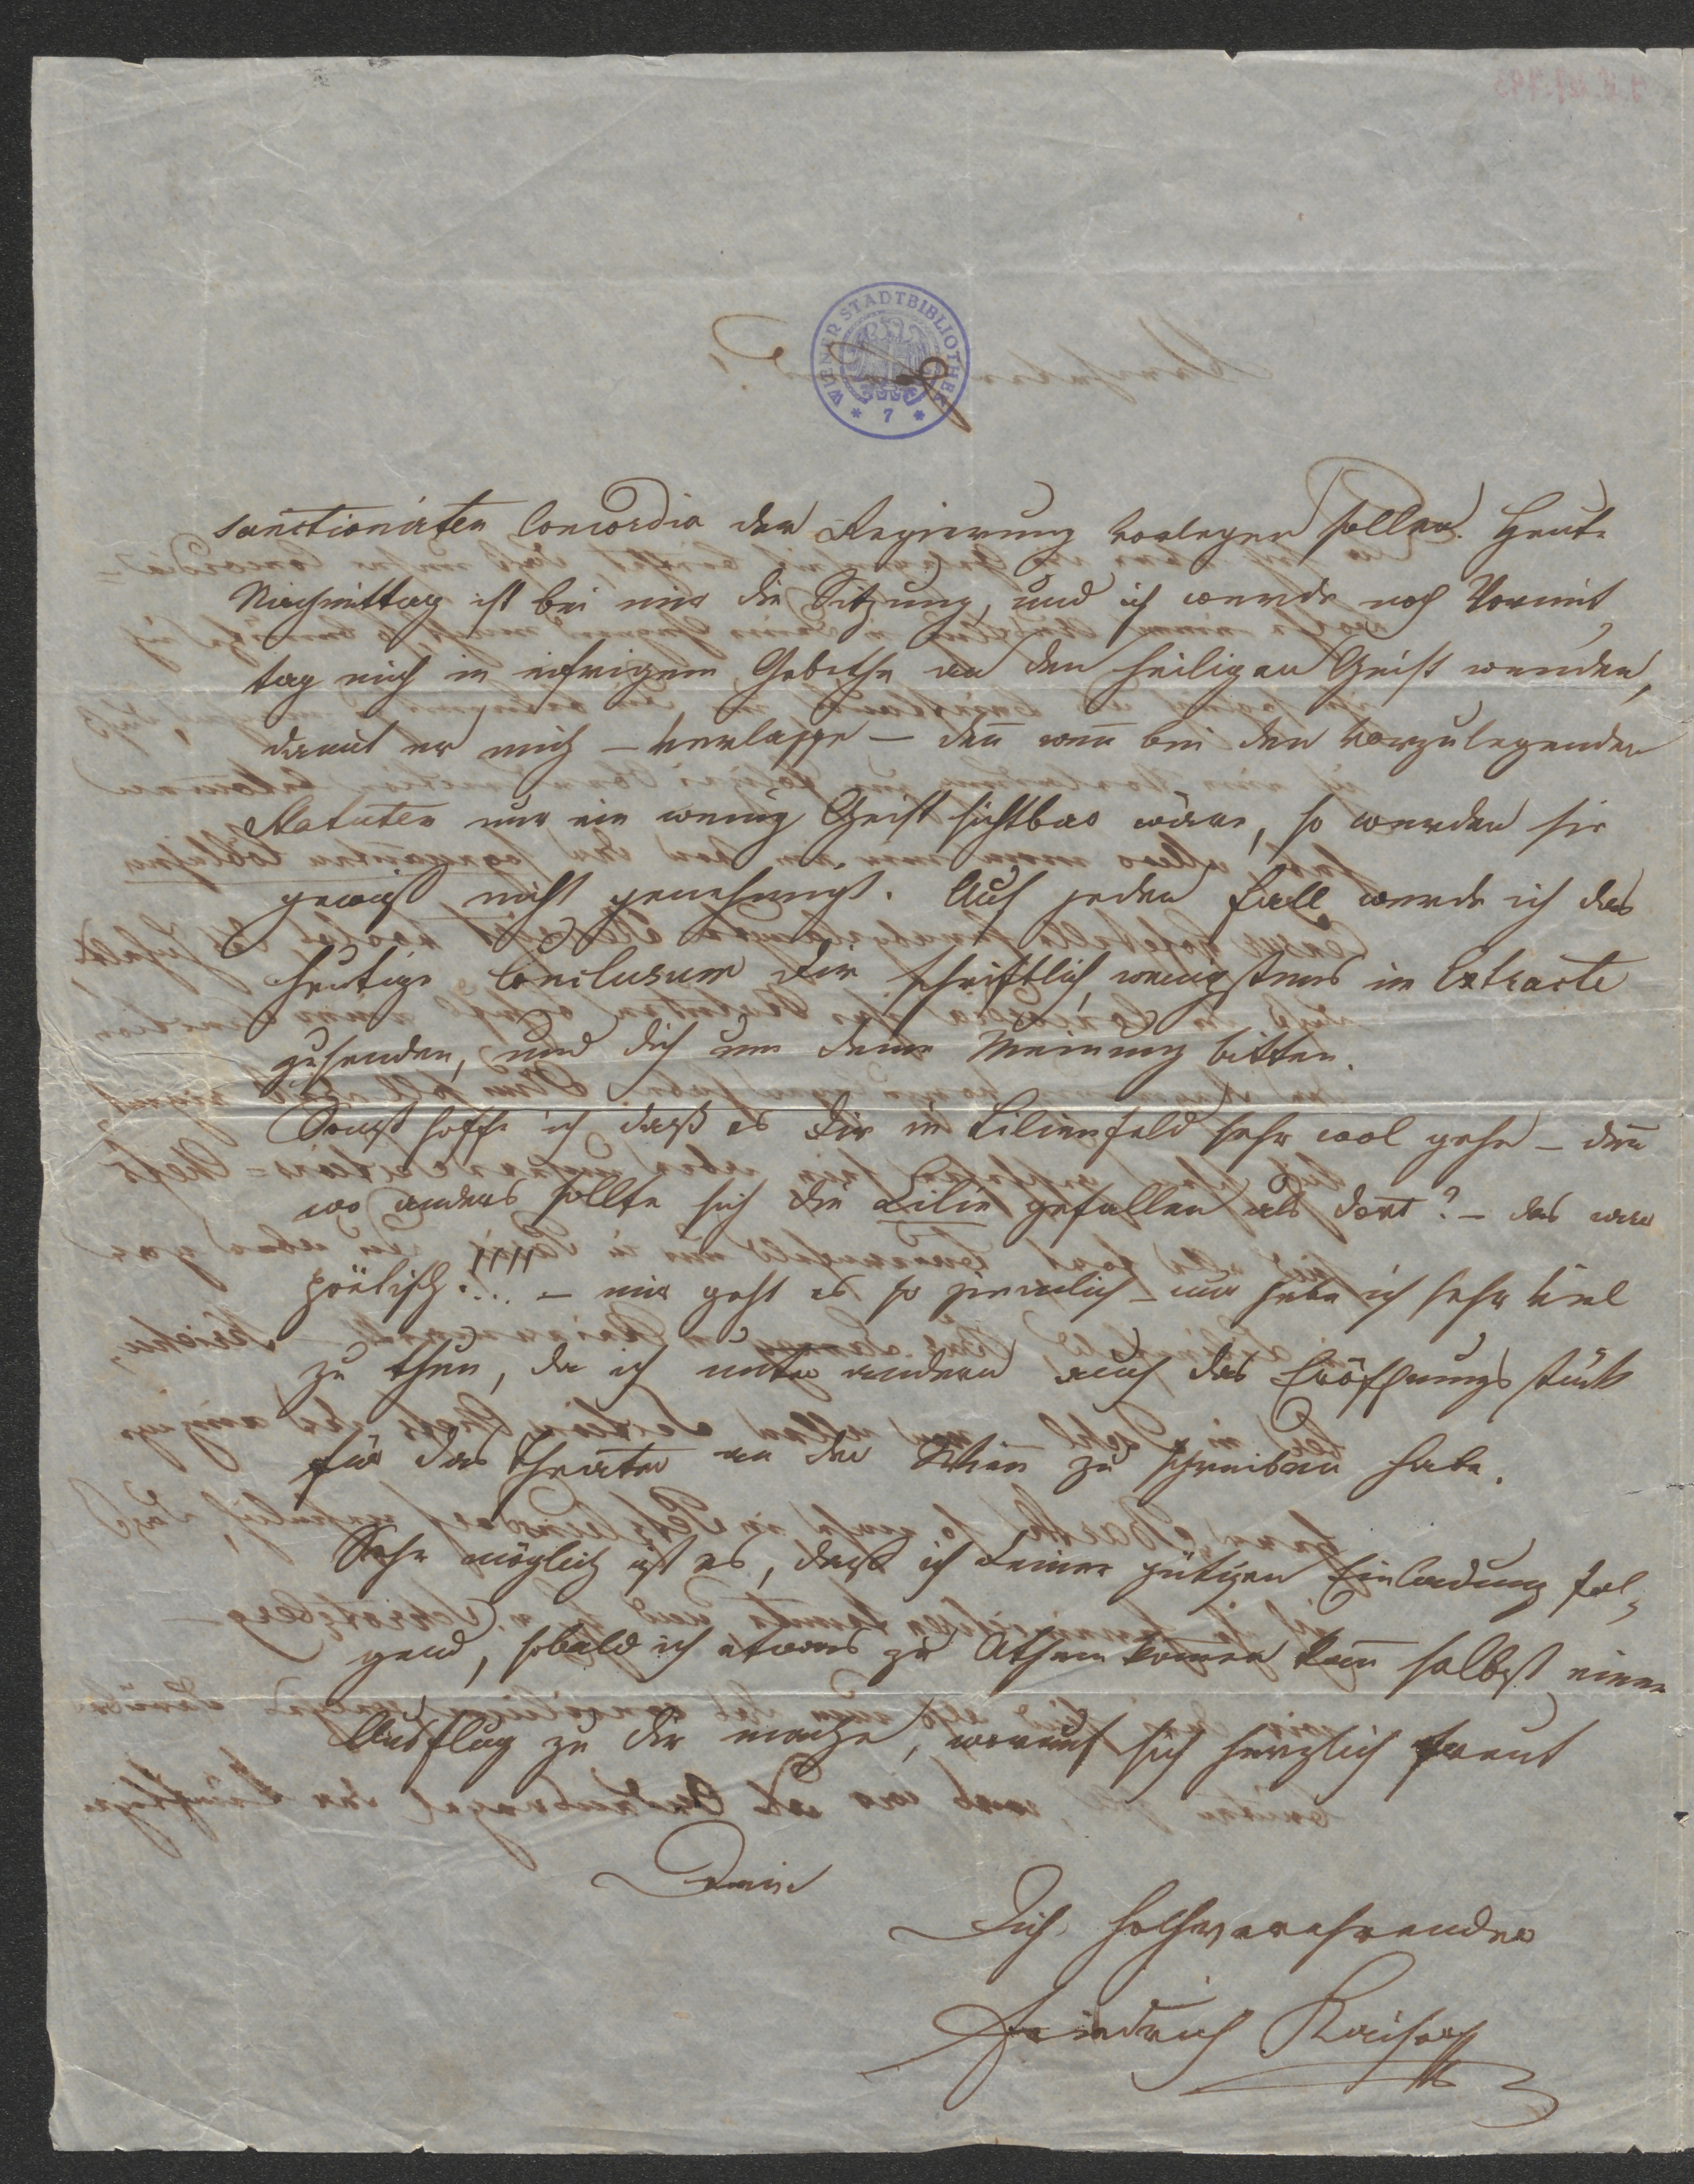 WIENER STADTBIBLIOTHEK
* 7 *
sanctionirten Concordia der Regierung vorlegen sollen. Heute
Nachmittag ist bei mir die Sitzung, und ich werde noch Vormit¬
tag mich in eifrigem Gebethe an den heiligen Geist wenden,
damit er mich – verlasse – deñ weñ bei den vorzulegenden
Statuten nur ein wenig Geist sichtbar wäre, so werden sie
gewiß nicht genehmigt. Auf jeden Fall werde ich das
heutige Conclusum Dir schriftlich, wenigstens im Extracte
zusenden, und dich um deine Meinung bitten.
Sonst hoffe ich daß es Dir in Lilienfeld sehr wol gehe – deñ
wo anders sollte sich die Lilie gefallen als dort? – das war
poëtisch!... – mir geht es so ziemlich – nur habe ich sehr viel
zu thun, da ich unter andern auch das Eröffnungsstück
für das Theater an der Wien zu schreiben habe.
Sehr möglich ist es, daß ich Deiner gütigen Einladung fol¬
gend, sobald ich etwas zu Athem komen kañ selbst einen
Ausflug zu Dir mache, worauf sich herzlich freut
Dein
Dich hochverehrender
Friedrich Kaiser